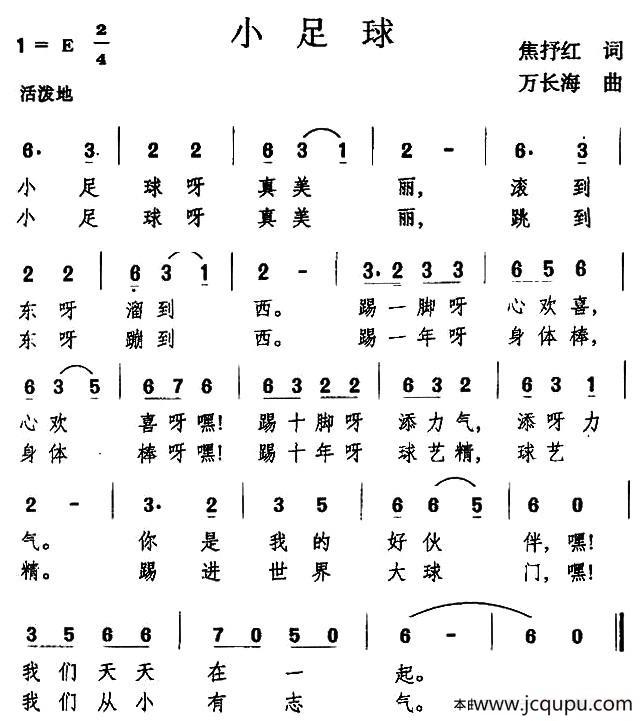 小 足 球
1 = E 2/4
焦抒红 词
万长海 曲
活泼地
6. 3 | 2 2 | 6 3 1 | 2 - | 6. 3
小 足 球 呀 真 美 丽, 滚 到
小 足 球 呀 真 美 丽, 跳 到
2 2 | 6 3 1 | 2 - | 3. 2 3 3 | 6 5 6
东 呀 溜 到 西。 踢 一 脚 呀 心 欢 喜,
东 呀 蹦 到 西。 踢 一 年 呀 身 体 棒,
6 3 5 | 6 7 6 | 6 3 2 2 | 6 3 2 | 6 3 1
心 欢 喜 呀 嘿! 踢 十 脚 呀 添 力 气, 添 呀 力
身 体 棒 呀 嘿! 踢 十 年 呀 球 艺 精, 球 艺
2 - | 3. 2 | 3 5 | 6 6 5 | 6 0
气。 你 是 我 的 好 伙 伴, 嘿!
精。 踢 进 世 界 大 球 门, 嘿!
3 5 6 6 | 7 0 5 0 | 6 - | 6 0
我 们 天 天 在 一 起。
我 们 从 小 有 志 气。
本曲www.jcqupu.com